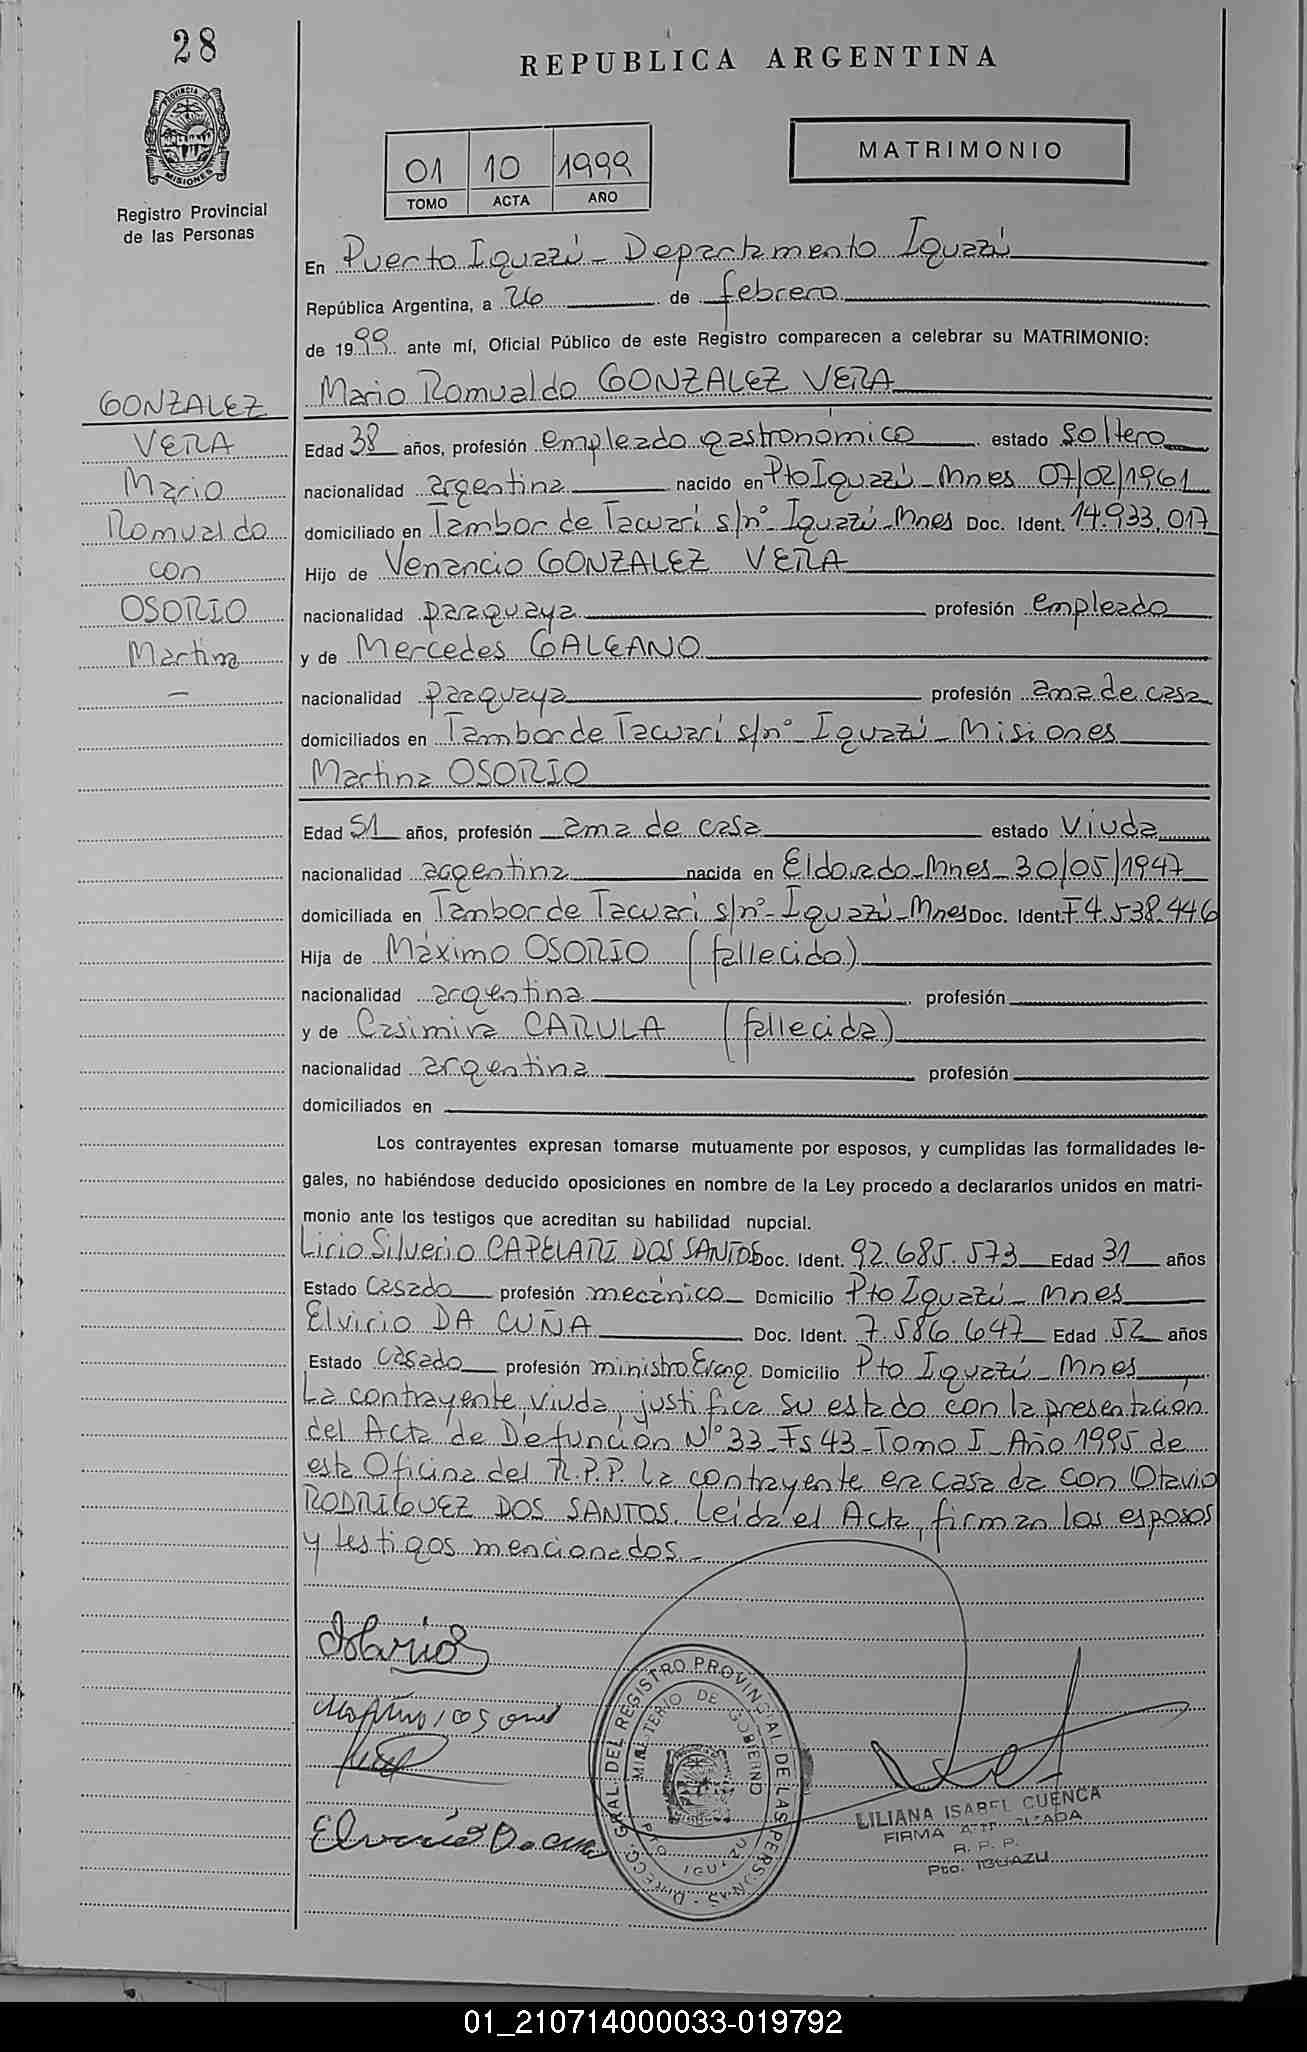 28
REPUBLICA ARGENTINA
PROVINCIA DE
MISIONES
Registro Provincial
de las Personas
01 10 1999
TOMO ACTA AÑO
MATRIMONIO
En Puerto Iguazú - Departamento Iguazú
República Argentina, a 26 de febrero
de 1999 ante mí, Oficial Público de este Registro comparecen a celebrar su MATRIMONIO:
Mario Romualdo GONZALEZ VERA
GONZALEZ
VERA
Mario
Romualdo
con
OSORIO
Martina
-
Edad 38 años, profesión empleado gastronómico estado soltero
nacionalidad argentina nacido en Pto Iguazú - Mnes 07/02/1961
domiciliado en Tambor de Tacuarí s/nº Iguazú - Mnes Doc. Ident. 14.933.017
Hijo de Venancio GONZALEZ VERA
nacionalidad paraguaya profesión empleado
y de Mercedes GALEANO
nacionalidad paraguaya profesión ama de casa
domiciliados en Tambor de Tacuarí s/nº Iguazú - Misiones
Martina OSORIO
Edad 51 años, profesión ama de casa estado viuda
nacionalidad argentina nacida en Eldorado - Mnes - 30/05/1947
domiciliada en Tambor de Tacuarí s/nº - Iguazú - Mnes Doc. Ident. F4.538.446
Hija de Máximo OSORIO (fallecido)
nacionalidad argentina profesión
y de Casimira CARULA (fallecida)
nacionalidad argentina profesión
domiciliados en
Los contrayentes expresan tomarse mutuamente por esposos, y cumplidas las formalidades le-
gales, no habiéndose deducido oposiciones en nombre de la Ley procedo a declararlos unidos en matri-
monio ante los testigos que acreditan su habilidad nupcial.
Lirio Silverio CAPELARI DOS SANTOS Doc. Ident. 92.685.573 Edad 31 años
Estado casado profesión mecánico Domicilio Pto Iguazú - Mnes
Elvirio DA CUÑA Doc. Ident. 7.586.647 Edad 52 años
Estado casado profesión ministro Evang. Domicilio Pto Iguazú - Mnes
La contrayente, viuda, justifica su estado con la presentación
del Acta de Defunción Nº 33 - Fs 43 - Tomo I - Año 1995 de
esta Oficina del R.P.P. La contrayente era casada con Otavio
RODRIGUEZ DOS SANTOS. Leída el Acta, firman los esposos
y testigos mencionados.
DIRECC. GRAL. DEL REGISTRO PROVINCIAL DE LAS PERSONAS
MINISTERIO DE GOBIERNO
PTO. IGUAZU
LILIANA ISABEL CUENCA
FIRMA AUTORIZADA
R. P. P.
Pto. IGUAZU
01_210714000033-019792